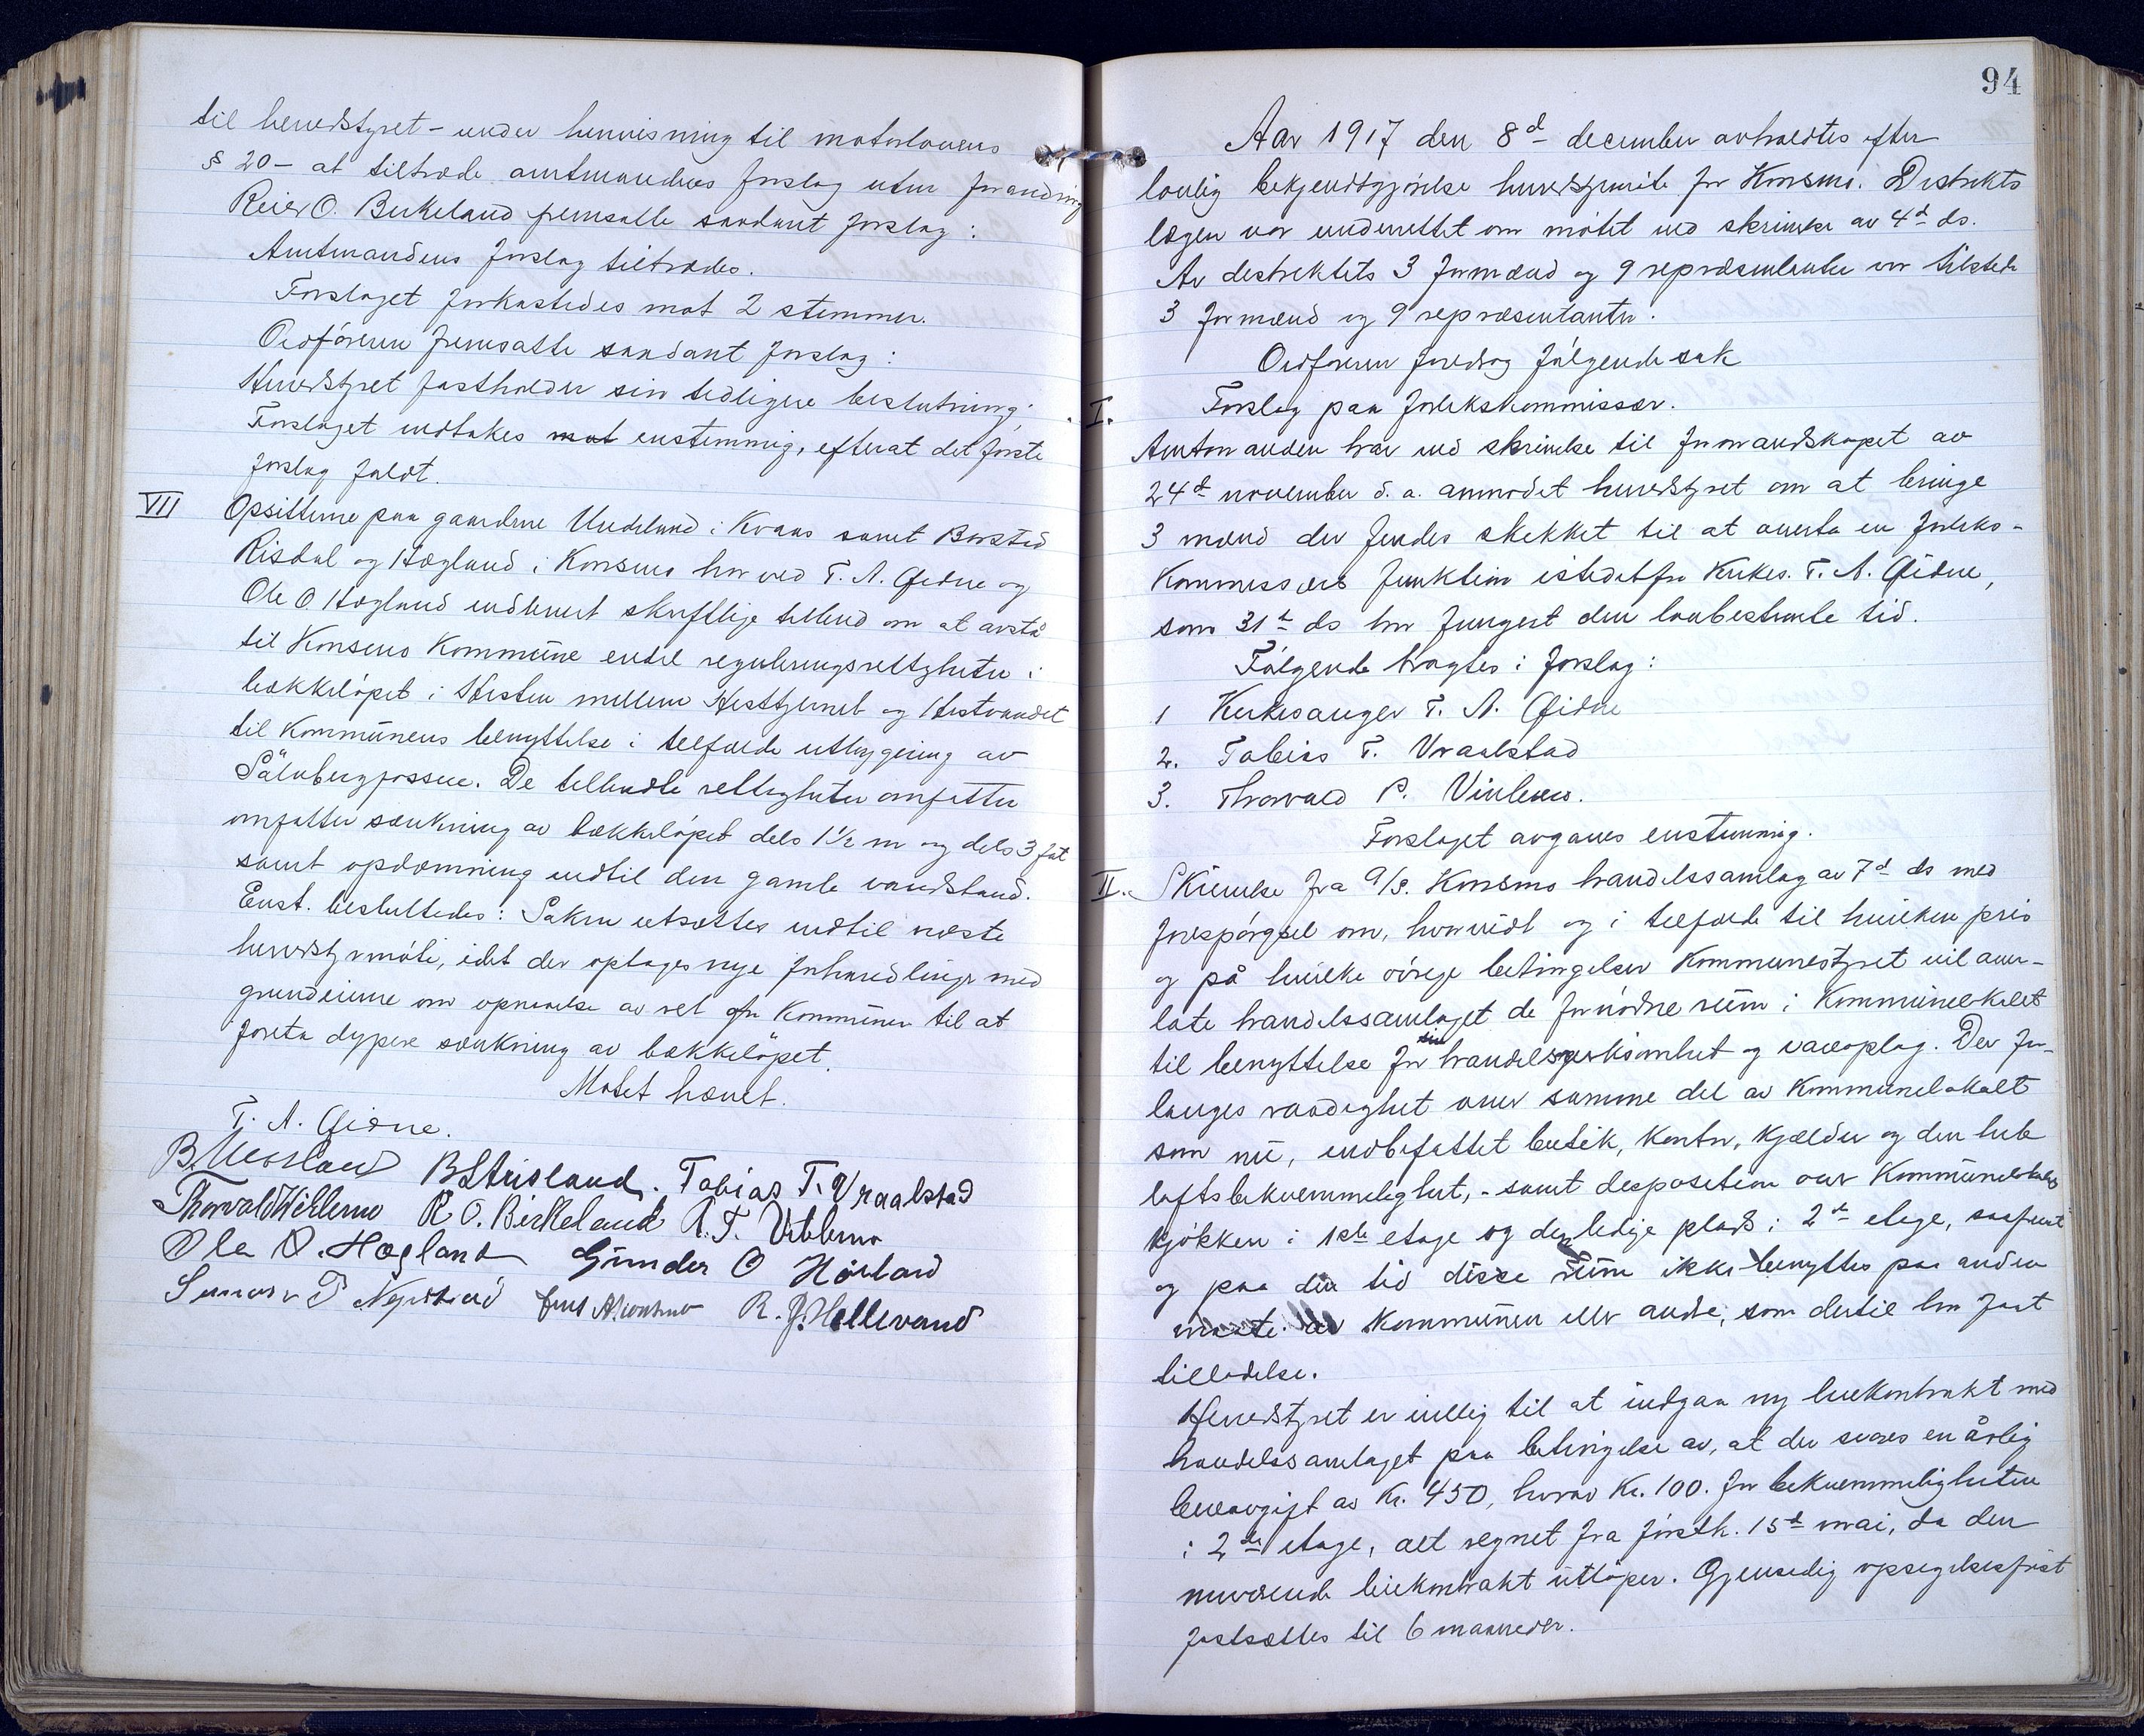 til herredstyret - under henvisning til motorlovens
§ 20 - at tiltræde amtmandens forslag uten forandring
Reier O. Birkeland fremsatte saadant forslag:
Amtmandens forslag tiltrædes.
Forslaget forkastedes mot 2 stemmer.
Ordføreren fremsatte saadant forslag:
Herredstyret fastholder sin tidligere beslutning.
Forslaget vedtakes mot enstemmig, efterat det første
forslag faldt.
VII Opsitterne paa gaardene Undeland i Kvaas samt
Risdal og Høgland i Konsmo har ved T. A. Gidne og
Ole O Høgland indlevert skriftlige tilbud om at avstå
til Konsmo Kommune endel reguleringsrettigheter i
bækkeløpet i Hesten mellem Hesttjernet og Hestvandet
til Kommunens benyttelse i tilfælde utbygging av
Sålnbergfossene. De tilbudte rettigheter omfatter
omfatter sænkning av bækkeløpet dels 1½ m og dels 3 fot
samt opdæmning indtil den gamle vandstand.
Enst. besluttedes: Saken utsættes indtil næste
herredstyrmøte, idet der optages nye forhandlinger med
grundeierne om opnaaelse av ret for Kommunen til at
foreta dypere sænkning av bækkeløpet.
Møtet hævet.
T. A. Gidne.
B. Usland B L Åusland. Tobias T. Vraalstad
Thorvald Viblemo R O. Birkeland A. T. Viblemo
Ola O. Høgland Gunder O Hörland
P Nepstad R. J. Hellevand
94
Aar 1917 den 8d december avholdtes efter
lovlig bekjendtgjørelse herredsmøte for Konsmo. Distrikts
lægen var underrettet om møtet ved skrivelse av 4d ds.
Av distriktets 3 formænd og 9 repræsentanter var tilstede
3 formænd og 9 repræsentanter.
Ordføreren foredrog følgende sak
I. Forslag paa forlikskommissær.
Amtmanden har ved skrivelse til formandskapet av
24d november d. a. anmodet herredstyret om at bringe
3 mænd der findes skikket til at overta en forliks-
Kommissærs funktion istedetfor Kirkes. T. A. Gidne,
som 31te ds har fungert den lovbestemte tid.
Følgende bragtes i forslag:
1 Kirkesanger T. A. Gidne
2. Tobias T. Vraalstad
3. Thorvald P. Viblemo.
Forslaget avgaves enstemmig.
II. Skrivelse fra A/S. Konsmo handelssamlag av 7d ds med
forespørgsel om, hvorvidt og i tilfælde til hvilken pris
og på hvilke øvrige betingelser Kommunestyret vil over-
late handelssamlaget de fornødne rum i Kommunelokalet
til benyttelse for sin handelsverksomhet og vareoplag. Der for-
langes raadighet over samme del av Kommunelokalet
som nu, indbefattet butik, kontor, kjælder og den hele
loftsbekvemmelighet, - samt desposition over Kommunelokalets
kjøkken i 1ste etage og den ledige plads i 2den etage, saafremt
og paa den tid disse rum ikke benyttes paa anden
maate av Kommunen eller andre, som dertil har faat
tilladelse.
Herredstyret er villig til at indgaa ny leiekontrakt med
handelssamlaget paa betingelse av, at der svares en årlig
leieavgift av Kr. 450, hvorav Kr. 100. for bekvemmeligheten
i 2den etage, alt regnet fra førstk. 15de mai, da den
nuværende leiekontrakt utløper. Gjensidig opsigelsesfrist
fastsættes til 6 maaneder.